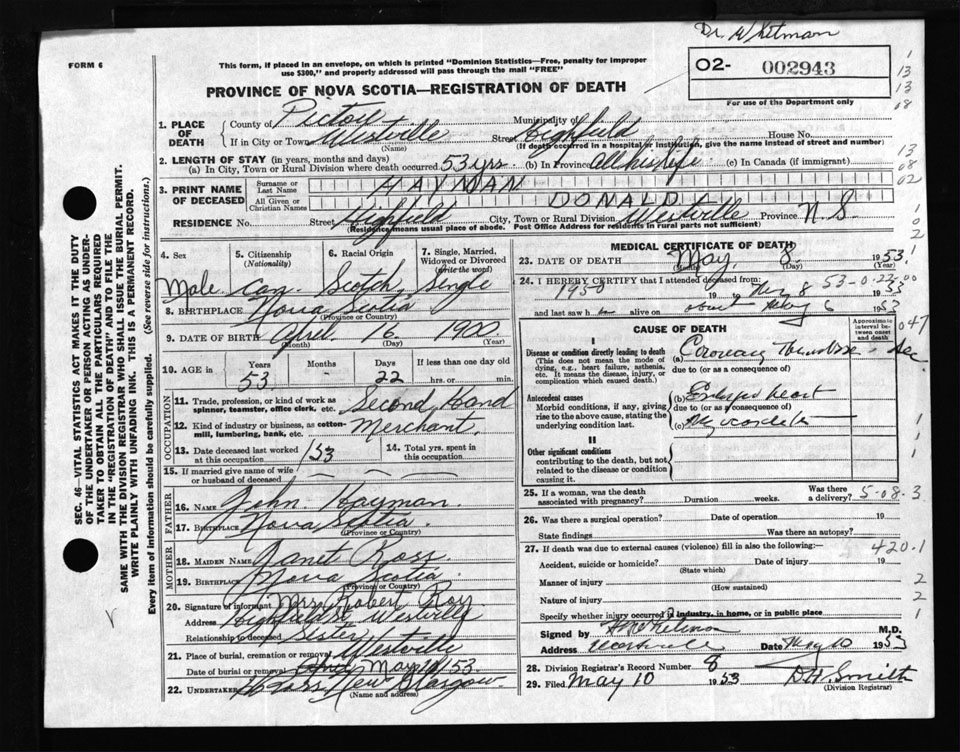 Dr. Whitman
FORM 6
This form, if placed in an envelope, on which is printed "Dominion Statistics—Free, penalty for improper
use $300," and properly addressed will pass through the mail "FREE"
02- 002943
For use of the Department only
PROVINCE OF NOVA SCOTIA—REGISTRATION OF DEATH
1. PLACE OF DEATH County of Pictou Municipality of
If in City or Town Westville Street Highfield House No.
(Name) (If death occurred in a hospital or institution, give the name instead of street and number)
2. LENGTH OF STAY (in years, months and days)
(a) In City, Town or Rural Division where death occurred 53 yrs. (b) In Province all his life (c) In Canada (if immigrant)
3. PRINT NAME OF DECEASED Surname or Last Name HAYMAN
All Given or Christian Names DONALD
RESIDENCE No. Street Highfield City, Town or Rural Division Westville Province N.S.
(Residence means usual place of abode. Post Office Address for residents in rural parts not sufficient)
4. Sex 5. Citizenship (Nationality) 6. Racial Origin 7. Single, Married, Widowed or Divorced (write the word)
Male Can. Scotch Single
8. BIRTHPLACE Nova Scotia
(Province or Country)
9. DATE OF BIRTH April 6 1900
(Month) (Day) (Year)
10. AGE in Years Months Days If less than one day old
53 - 22 hrs. or min.
OCCUPATION
11. Trade, profession, or kind of work as spinner, teamster, office clerk, etc. Second Hand
12. Kind of industry or business, as cotton-mill, lumbering, bank, etc. Merchant.
13. Date deceased last worked at this occupation 1953 14. Total yrs. spent in this occupation
15. If married give name of wife or husband of deceased —
FATHER
16. NAME John Hayman
17. BIRTHPLACE Nova Scotia
(Province or Country)
MOTHER
18. MAIDEN NAME Janet Ross
19. BIRTHPLACE Nova Scotia
(Province or Country)
20. Signature of informant Mrs. Robert Roy
Address Highfield St. Westville
Relationship to deceased Sister
21. Place of burial, cremation or removal Westville
Date of burial or removal May 10 1953.
22. Undertaker New Glasgow
(Name and address)
MEDICAL CERTIFICATE OF DEATH
23. DATE OF DEATH May, 8. 1953.
(Month) (Day) (Year)
24. I HEREBY CERTIFY that I attended deceased from:
1950 19 to May 8 53-0-22-00 1953
and last saw h alive on May 6 1953
CAUSE OF DEATH
Approximate interval between onset and death
I
Disease or condition directly leading to death
(This does not mean the mode of dying, e.g., heart failure, asthenia, etc. It means the disease, injury, or complication which caused death.)
(a) Coronary Thrombosis
due to (or as a consequence of)
Antecedent causes
Morbid conditions, if any, giving rise to the above cause, stating the underlying condition last.
(b) Enlarged heart
due to (or as a consequence of)
(c)
II
Other significant conditions
contributing to the death, but not related to the disease or condition causing it.
25. If a woman, was the death associated with pregnancy? Duration weeks. Was there a delivery? 5-08-3
26. Was there a surgical operation? Date of operation 19
State findings Was there an autopsy?
27. If death was due to external causes (violence) fill in also the following:— 420.1
Accident, suicide or homicide? Date of injury 19
(State which)
Manner of injury
(How sustained)
Nature of injury
Specify whether injury occurred in industry, in home, or in public place
Signed by Whitman M.D.
Address Westville Date May 10 1953
28. Division Registrar's Record Number 8
29. Filed May 10 1953 D.H. Smith
(Division Registrar)
SEC. 46—VITAL STATISTICS ACT MAKES IT THE DUTY
OF THE UNDERTAKER OR PERSON ACTING AS UNDER-
TAKER TO OBTAIN ALL THE PARTICULARS REQUIRED
IN THE "REGISTRATION OF DEATH" AND TO FILE THE
SAME WITH THE DIVISION REGISTRAR WHO SHALL ISSUE THE BURIAL PERMIT.
WRITE PLAINLY WITH UNFADING INK. THIS IS A PERMANENT RECORD.
Every item of information should be carefully supplied. (See reverse side for instructions.)
1
13
13
08
13
08
02
1
0
2
047
1
1
1
2
2
1